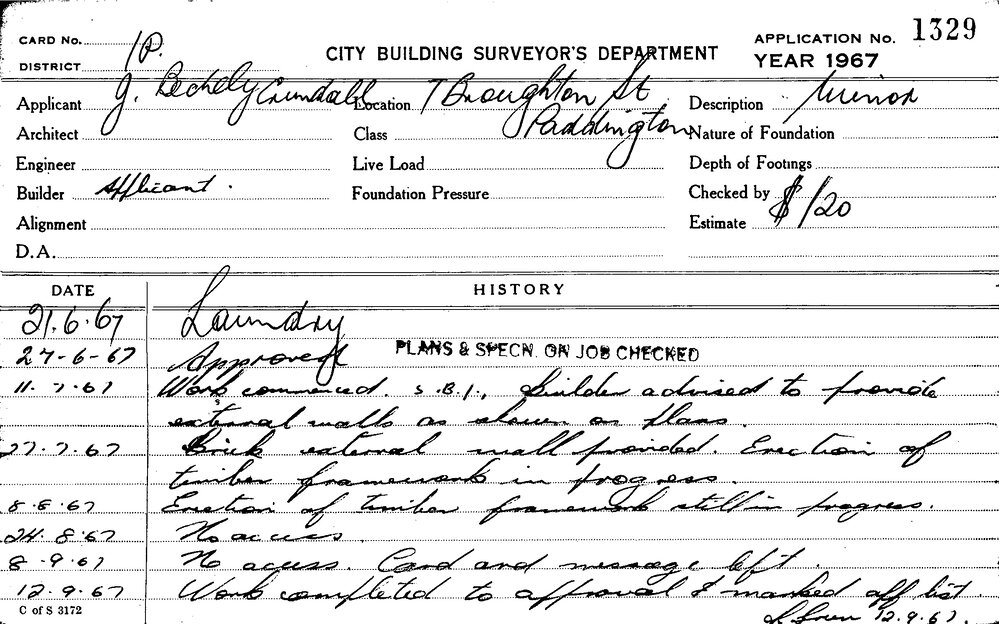 CARD No.
1P.
DISTRICT
CITY BUILDING SURVEYOR'S DEPARTMENT
APPLICATION No. 1329
YEAR 1967
Applicant J. Crundall
Location 7 Broughton St,
Paddington
Description Minor
Architect
Class
Nature of Foundation
Engineer
Live Load
Depth of Footings
Builder Applicant.
Foundation Pressure
Checked by
Alignment
Estimate $120
D.A.
DATE
HISTORY
21.6.67 Laundry
27-6-67 Approved PLANS & SPECN. ON JOB CHECKED
11.7.67 Work commenced. S.B.I., Builder advised to provide
external walls as shown on plans.
27.7.67 Brick external wall provided. Erection of
timber framework in progress.
8.8.67 Erection of timber framework still in progress.
24.8.67 No access.
8.9.67 No acess. Card and message left.
12.9.67 Work completed to approval & marked off list
12.9.67.
C of S 3172